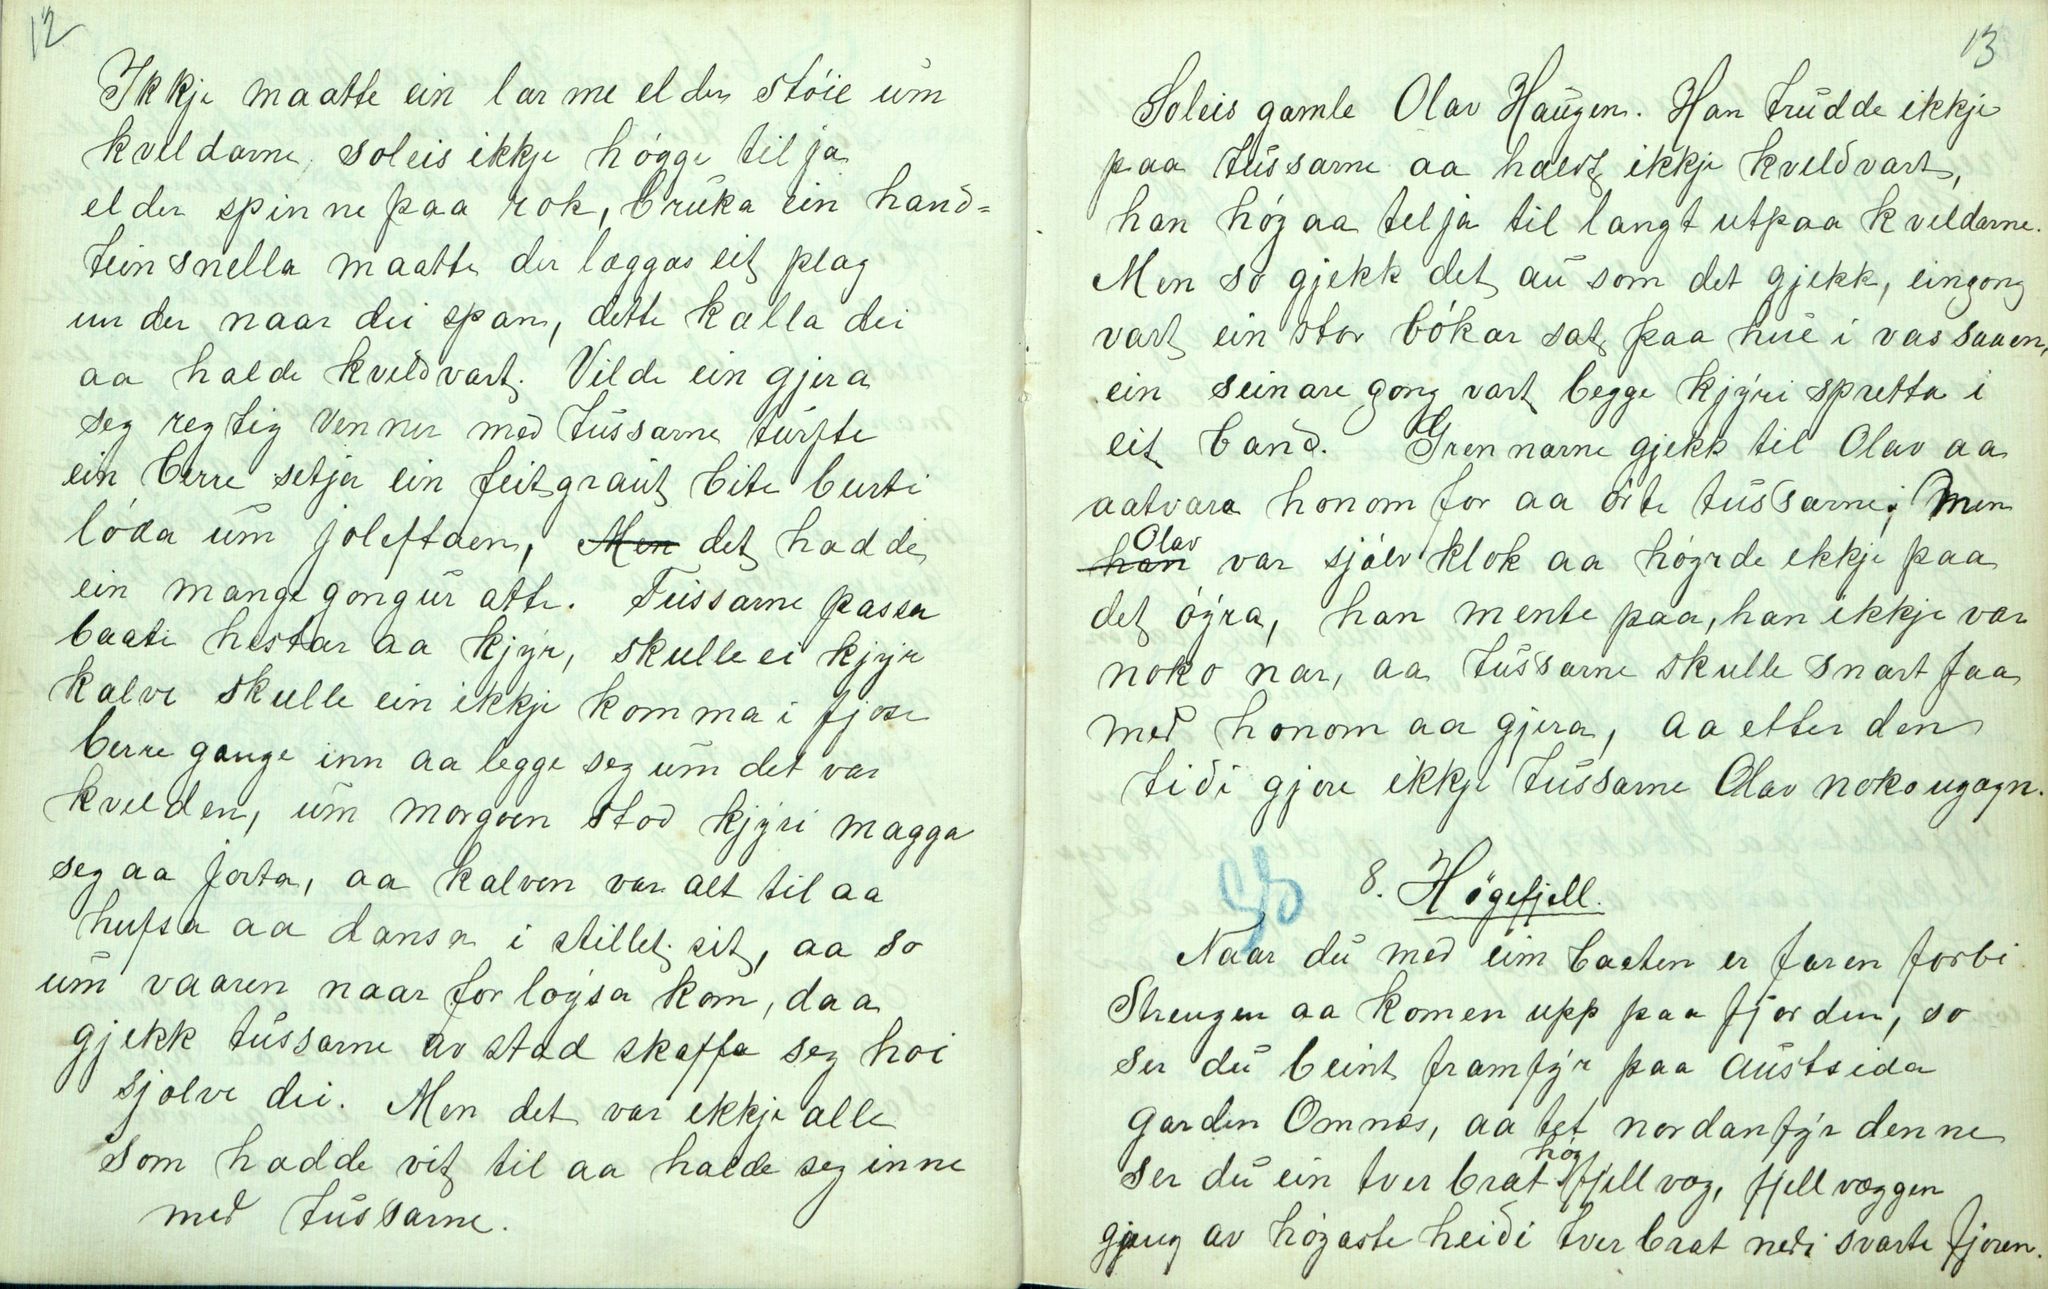 12
Ikkje maatte ein larme elder stóie um
kveldarne, soleis ikkje hógge telja
elder spinne paa rok, bruka ein hand=
teinsnella maatte der læggas eit plag
under naar dei span, dette kalla dei
aa halde kveldvart. Vilde ein gjera
seg regtig venner med tussarne turfte
ein berre setja ein feit graut bite burti
lóda um joleftaen, Men det hadde
ein mange gongur atte. Tussarne passa
baate hestar aa kjýr, skulle ei kjýr
kalve skulle ein ikkje komma i fjose
berre gange inn aa legge seg um det var
kvelden, um morgoen stod kjýri magga
seg aa jorta, aa kalven var alt til aa
hufsa aa dansa i stillet sit, aa so
um vaaren naar forlóysa kom, daa
gjekk tussarne av stad skaffa seg hoi
sjølve dei. Men det var ikkje alle
som hadde vit til aa halde seg inne
med tussarne.
13
Soleis gamle Olav Haugen. Han trudde ikkje
paa tussarne aa haldt ikkje kveldvart,
han hóg aa telja til langt utpaa kveldarne.
Men so gjekk det au som det gjekk, eingong
vart ein stor bókar sat paa hue i vassaaen,
ein seinare gong vart begge kjýri spretta i
eit band. Grennarne gjekk til Olav aa
aatvara honom for aa órte tussarne; men
han Olav var sjólv klok aa hóyrde ikkje paa
det óyra, han mente paa, han ikkje var
noko nar, aa tussarne skulle snart faa
med honom aa gjera, aa etter den
tidi gjore ikkje tussarne Olav noko ugagn.
8. Høgefjell.
Naar du med eim baaten er faren forbi
Strengen aa komen upp paa fjorden, so
ser du beint framfýr paa austsida
garden Omnes, aa tet nordanfýr denne
ser du ein tverbrat hóg fjellvæg, fjellvæggen
gjeng av hógaste heidi tverbrat nedi svarte fjoren.